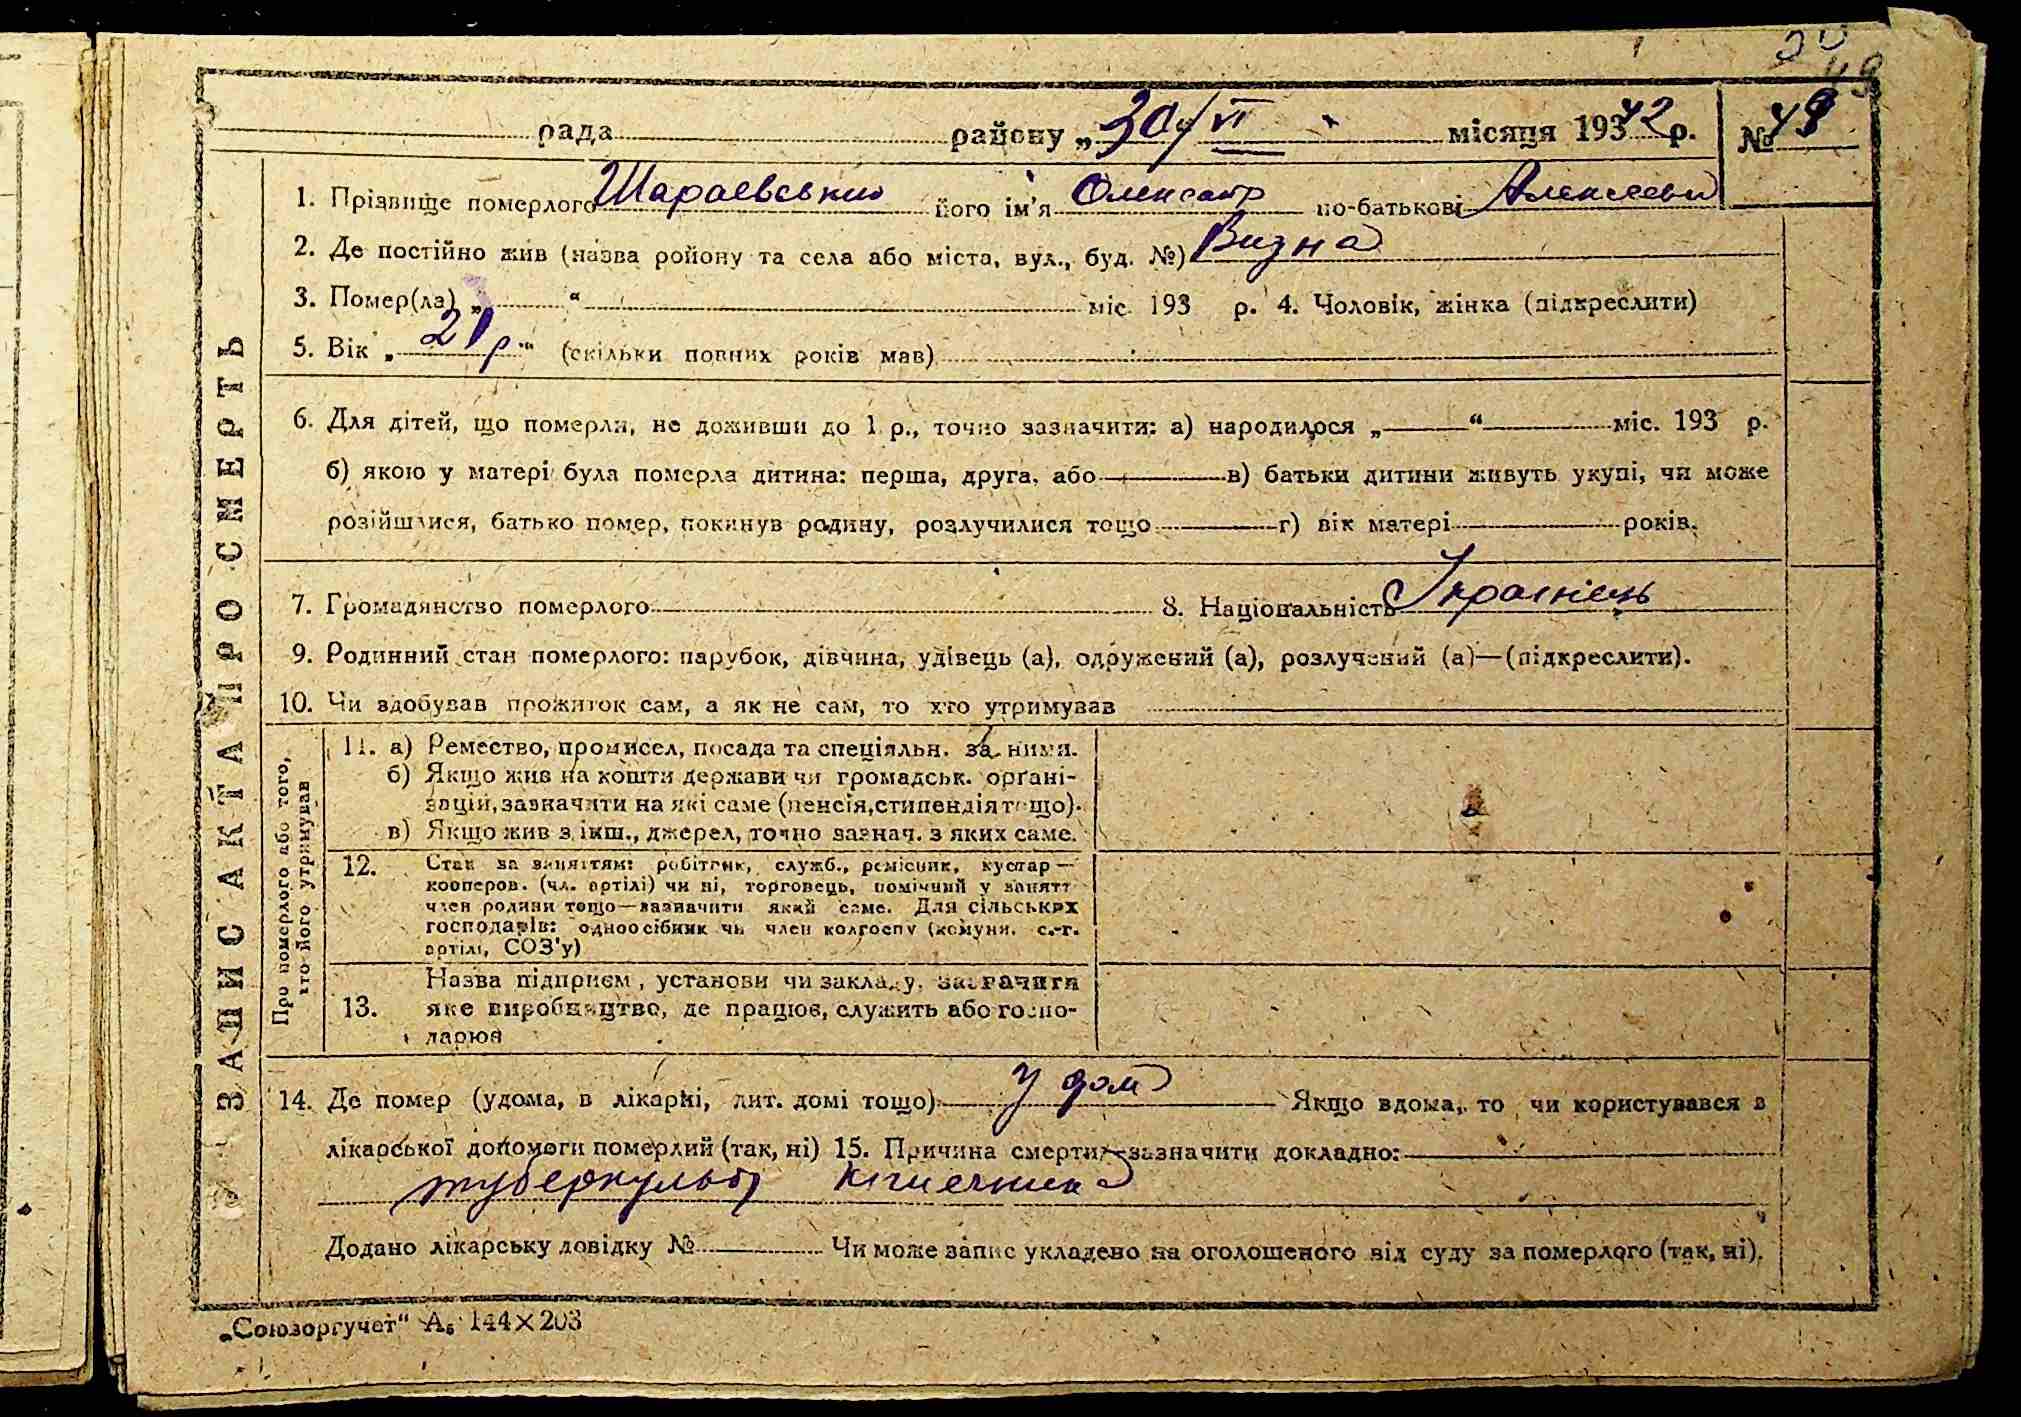 49
рада району „30/VI місяця 19342 р. № 49
1. Прізвище померлого Шараевський його ім'я Олександр по-батькові Алексеевич
2. Де постійно жив (назва ройону та села або міста, вул., буд. №) Визна
3. Помер(ла) „ “ міс. 193 р. 4. Чоловік, жінка (підкреслити)
5. Вік „ 21 р. “ (скільки повних років мав)
6. Для дітей, що померли, не доживши до 1 р., точно зазначити: а) народилося „ “ міс. 193 р.
б) якою у матері була померла дитина: перша, друга, або в) батьки дитини живуть укупі, чи може
розійшлися, батько помер, покинув родину, розлучилися тощо г) вік матері років.
7. Громадянство померлого 8. Національність Українець
9. Родинний стан померлого: парубок, дівчина, удівець (а), одружений (а), розлучений (а)—(підкреслити).
10. Чи здобував прожиток сам, а як не сам, то хто утримував
ЗАПИС АКТА ПРО СМЕРТЬ
Про померлого або того,
хто його утримував
11. а) Ремество, промисел, посада та спеціяльн. за ними.
б) Якщо жив на кошти держави чи громадськ. органі-
зацій, зазначити на які саме (пенсія, стипендія тощо).
в) Якщо жив з інш., джерел, точно зазнач. з яких саме.
12. Стан за заняттям: робітник, служб., ремісник, кустар —
кооперов. (чл. артілі) чи ні, торговець, помічний у занятт
член родини тощо—зазначити який саме. Для сільських
господарів: одноосібник чи член колгоспу (комуни, с.-г.
артілі, СОЗ'у)
Назва підприєм, установи чи закладу, зазначити
13. яке виробництво, де працює, служить або госпо-
дарює
14. Де помер (удома, в лікарні, пит. домі тощо) у дом Якщо вдома, то чи користувався з
лікарської допомоги померлий (так, ні) 15. Причина смерти, зазначити докладно:
туберкульоз кишечника
Додано лікарську довідку № Чи може запис укладено на оголошеного від суду за померлого (так, ні).
„Союзоргучет“ А₅ 144×203